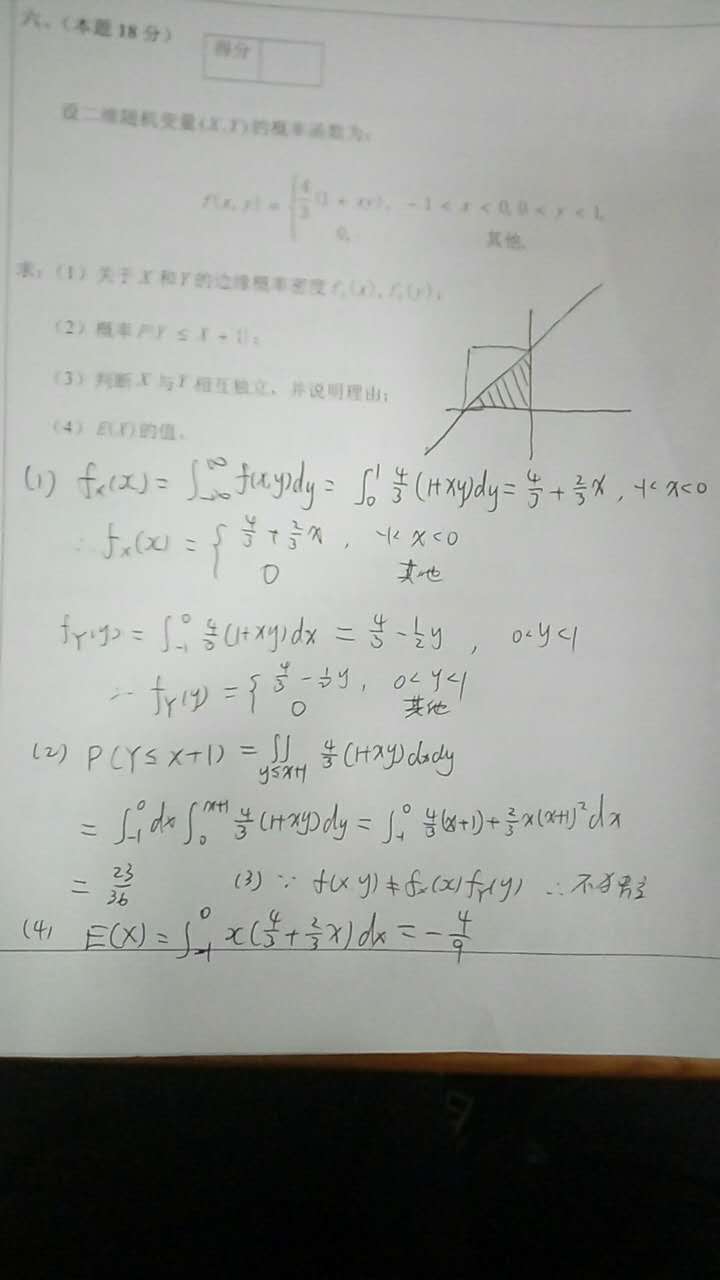 六、(本题 18 分)
得分
设二维随机变量(X,Y)的概率函数为:
f(x, y) = { 4/3 (1 + xy), -1 < x < 0, 0 < y < 1,
0, 其他.
求:(1)关于 X 和 Y 的边缘概率密度
(2)概率 P{Y ≤ X + 1};
(3)判断 X 与 Y 相互独立,并说明理由;
(4)E(X) 的值。
(1) fx(x) = ∫_{-∞}^{∞} f(xy)dy = ∫_0^1 4/3 (1+xy)dy = 4/3 + 2/3 x , -1< x<0
∴ fx(x) = { 4/3 + 2/3 x , -1< x<0
0 其他
fY(y) = ∫_{-1}^0 4/3 (1+xy)dx = 4/3 - 1/2 y , 0<y<1
∴ fY(y) = { 4/3 - 1/2 y , 0< y<1
0 其他
(2) P(Y≤ X+1) = ∬_{y≤x+1} 4/3 (1+xy)dxdy
= ∫_{-1}^0 dx ∫_0^{x+1} 4/3 (1+xy)dy = ∫_{-1}^0 4/3 (x+1) + 2/3 x(x+1)^2 dx
= 23/36 (3) ∵ f(xy) ≠ fx(x)fY(y) ∴ 不
(4) E(X) = ∫_{-1}^0 x(4/3 + 2/3 x)dx = -4/9